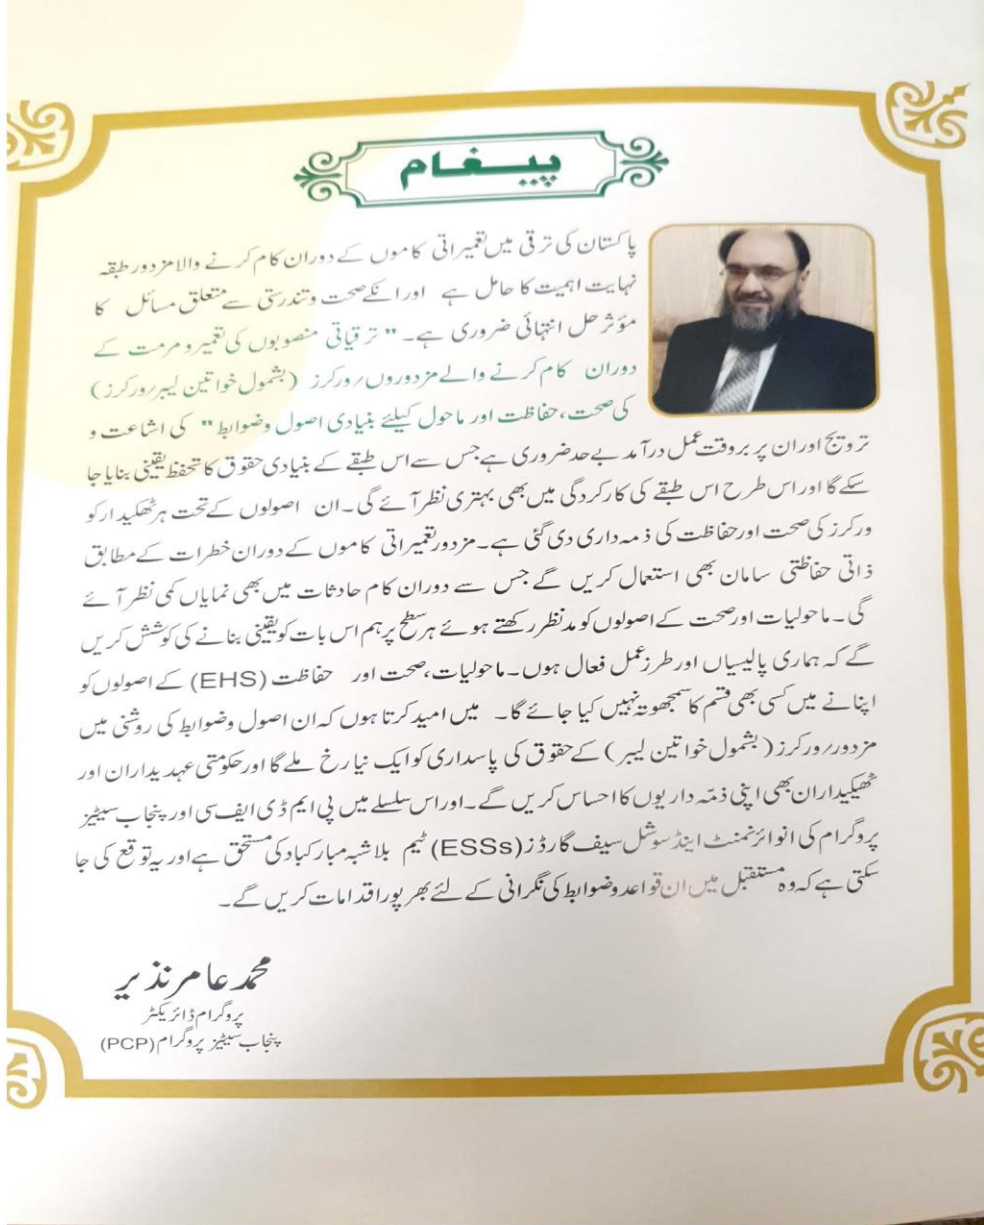 پیغام
پاکستان کی ترقی میں تعمیراتی کاموں کے دوران کام کرنے والا مزدور طبقہ
نہایت اہمیت کا حامل ہے اور انکے صحت و تندرستی سے متعلق مسائل کا
مؤثر حل انتہائی ضروری ہے۔ " ترقیاتی منصوبوں کی تعمیر و مرمت کے
دوران کام کرنے والے مزدوروں/ورکرز (بشمول خواتین لیبر/ورکرز)
کی صحت، حفاظت اور ماحول کیلئے بنیادی اصول وضوابط" کی اشاعت و
ترویج اور ان پر بروقت عمل درآمد بے حد ضروری ہے جس سے اس طبقے کے بنیادی حقوق کا تحفظ یقینی بنایا جا
سکے گا اور اس طرح اس طبقے کی کارکردگی میں بھی بہتری نظر آئے گی۔ ان اصولوں کے تحت ہر ٹھکیدار کو
ورکرز کی صحت اور حفاظت کی ذمہ داری دی گئی ہے۔ مزدور تعمیراتی کاموں کے دوران خطرات کے مطابق
ذاتی حفاظتی سامان بھی استعمال کریں گے جس سے دوران کام حادثات میں بھی نمایاں کمی نظر آئے
گی۔ ماحولیات اور صحت کے اصولوں کو مدنظر رکھتے ہوئے ہر سطح پر ہم اس بات کو یقینی بنانے کی کوشش کریں
گے کہ ہماری پالیسیاں اور طرز عمل فعال ہوں۔ ماحولیات، صحت اور حفاظت (EHS) کے اصولوں کو
اپنانے میں کسی بھی قسم کا سمجھوتہ نہیں کیا جائے گا۔ میں امید کرتا ہوں کہ ان اصول وضوابط کی روشنی میں
مزدور/ورکرز (بشمول خواتین لیبر) کے حقوق کی پاسداری کو ایک نیا رخ ملے گا اور حکومتی عہدیداران اور
ٹھیکیداران بھی اپنی ذمّہ داریوں کا احساس کریں گے۔ اور اس سلسلے میں پی ایم ڈی ایف سی اور پنجاب سیٹیز
پروگرام کی انوائرنمنٹ اینڈ سوشل سیف گارڈز (ESSs) ٹیم بلاشبہ مبارکباد کی مستحق ہے اور یہ توقع کی جا
سکتی ہے کہ وہ مستقبل میں ان قواعد وضوابط کی نگرانی کے لئے بھرپور اقدامات کریں گے۔
محمد عامر نذیر
پروگرام ڈائریکٹر
پنجاب سیٹیز پروگرام (PCP)